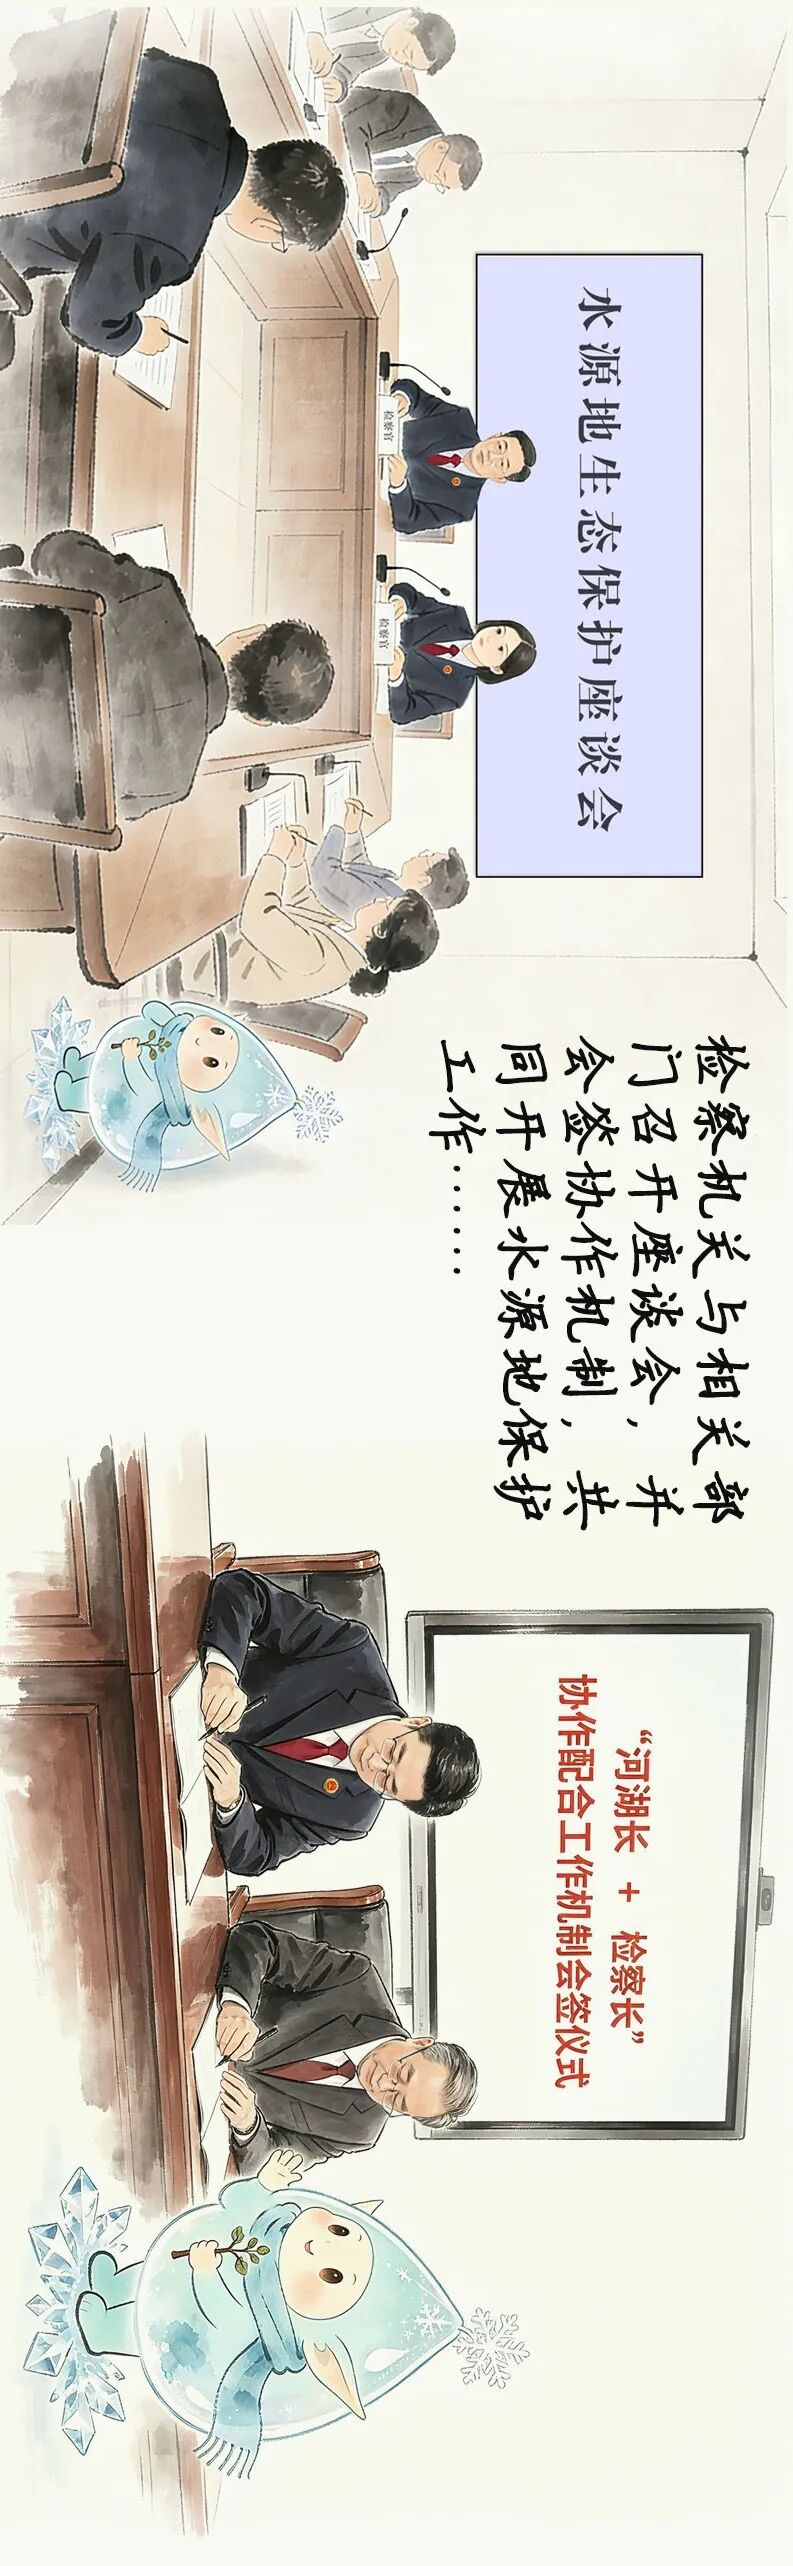 水源地生态保护座谈会
检察官
检察官
检察机关与相关部
门召开座谈会，并
会签协作机制，共
同开展水源地保护
工作……
“河湖长 + 检察长”
协作配合工作机制会签仪式